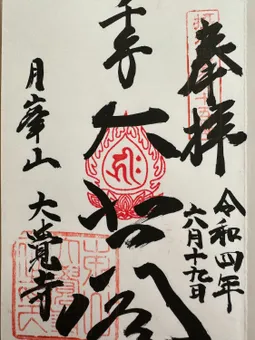 奉拝
令和四年
六月十九日
千手
大悲殿
月峯山 大覺寺